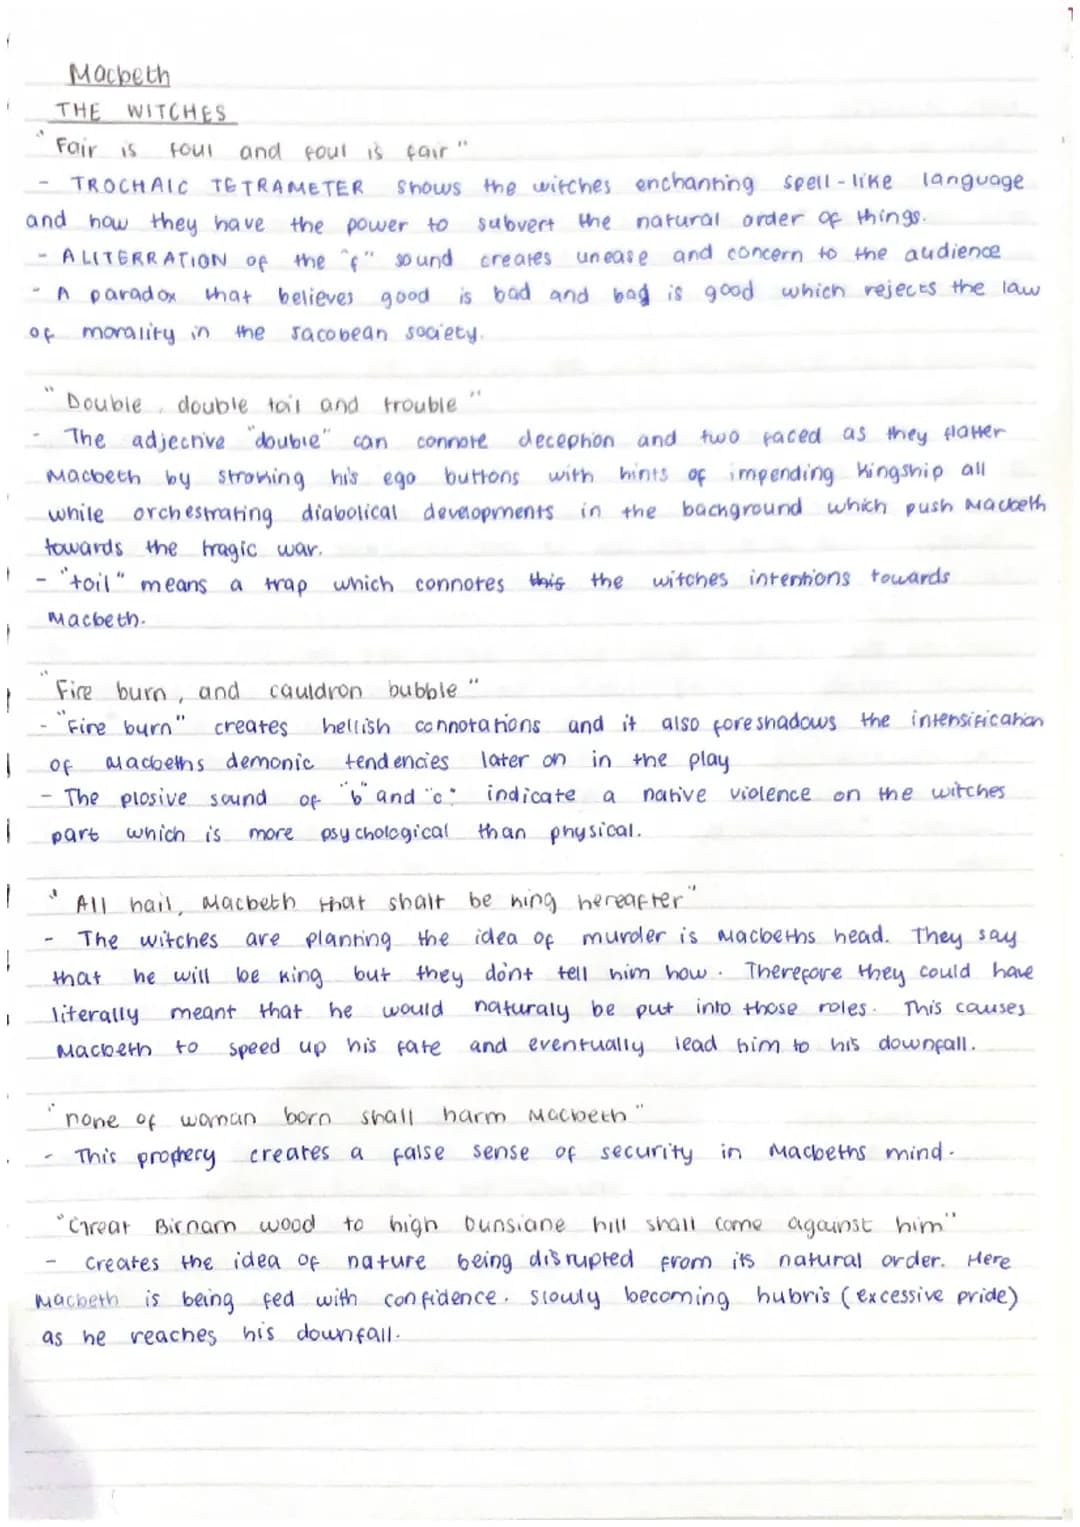 Macbeth
THE WITCHES
"Fair is foul and foul is fair"
- TROCHAIC TETRAMETER shows the witches enchanting spell-like language
and how they have the power to subvert the natural order of things.
- ALITERRATION of the "f" sound creates unease and concern to the audience
- A paradox that believes good is bad and bad is good which rejects the law
of morality in the Jacobean society.
"Double, double toil and trouble"
- The adjective "double" can connote deception and two faced as they flatter
Macbeth by stroking his ego buttons with hints of impending kingship all
while orchestrating diabolical developments in the background which push Macbeth
towards the tragic war.
- "toil" means a trap which connotes this the witches intentions towards
Macbeth.
"Fire burn, and cauldron bubble"
- "Fire burn" creates hellish connotations and it also foreshadows the intensification
of Macbeths demonic tendencies later on in the play
- The plosive sound of "b" and "c" indicate a native violence on the witches
part which is more psychological than physical.
"All hail, Macbeth that shalt be king hereafter"
- The witches are planting the idea of murder is Macbeths head. They say
that he will be king but they don't tell him how. Therefore they could have
literally meant that he would naturaly be put into those roles. This causes
Macbeth to speed up his fate and eventually lead him to his downfall.
"none of woman born shall harm Macbeth"
- This prophery creates a false sense of security in Macbeths mind.
"Great Birnam wood to high Dunsiane hill shall come against him"
- Creates the idea of nature being disrupted from its natural order. Here
Macbeth is being fed with confidence. Slowly becoming hubris (excessive pride)
as he reaches his downfall.